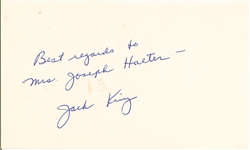 Best regards to
Mrs. Joseph Halter —
Jack King